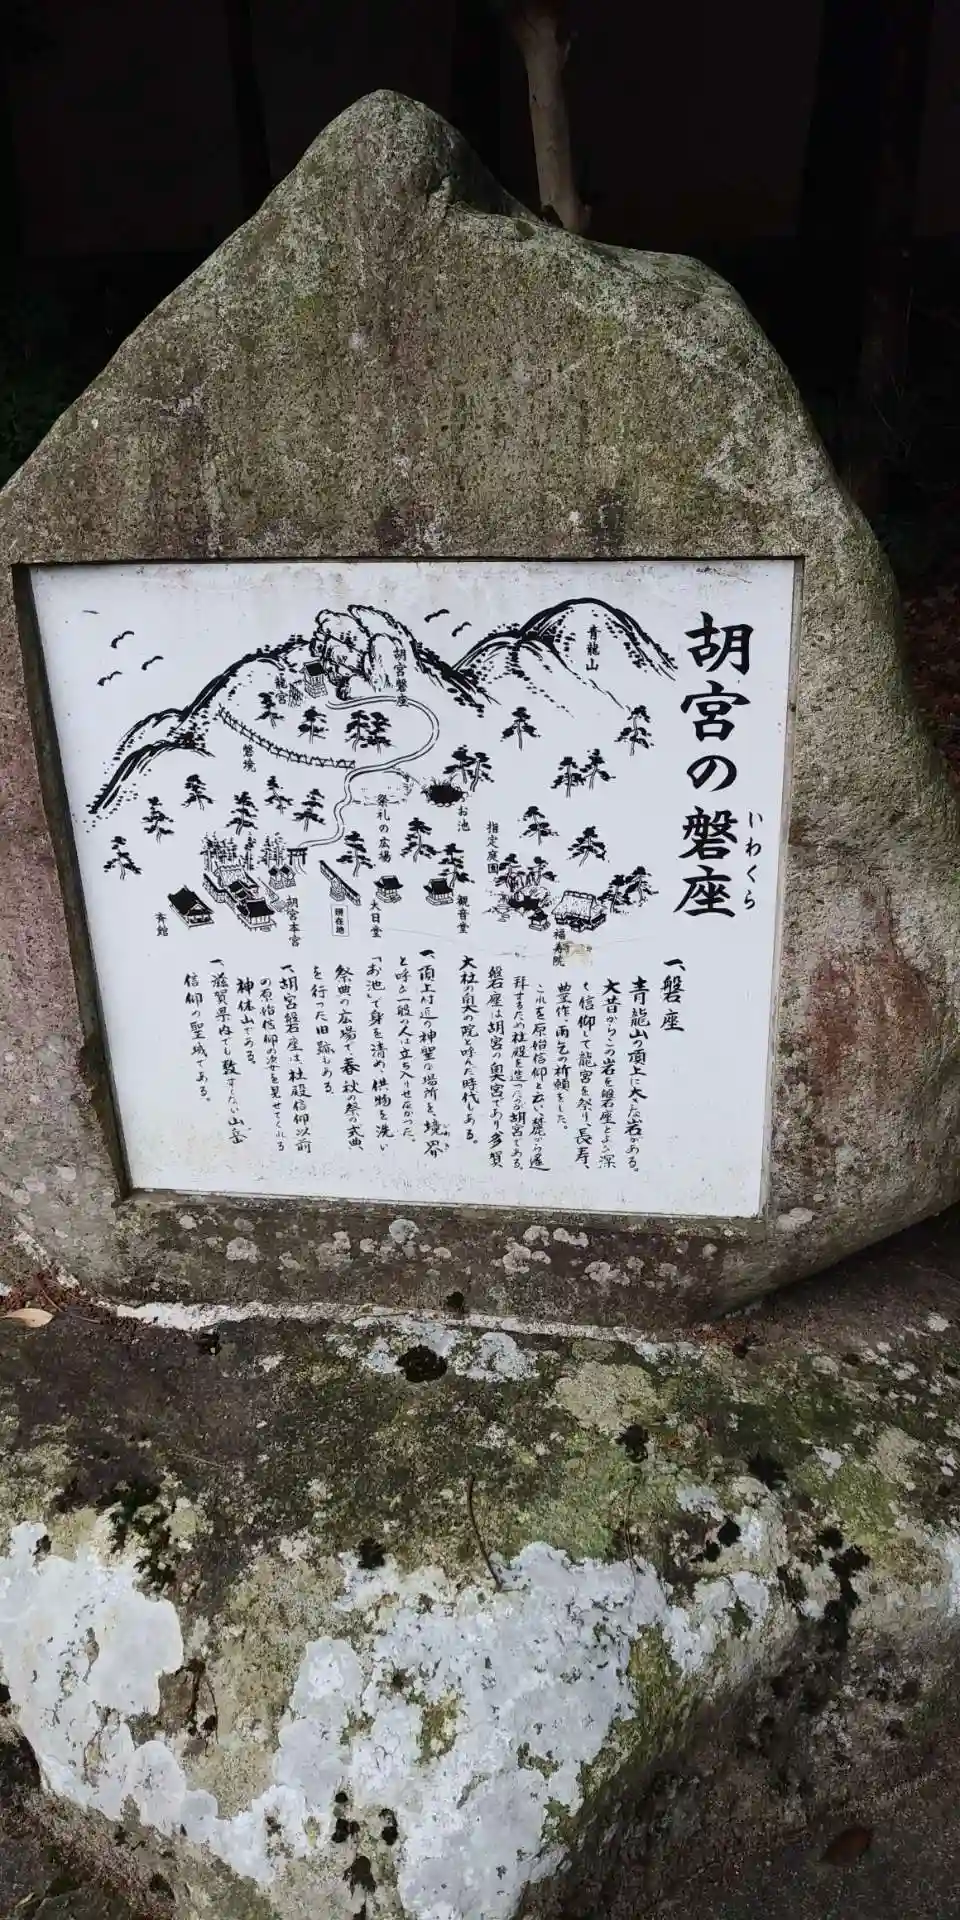 胡宮の磐座
いわくら
青龍山
胡宮磐座
龍宮
磐境
祭礼の広場
お池
指定庭園
胡宮本宮
斉館
現在地
大日堂
観音堂
福寿院
一、磐座
青龍山の頂上に大きな岩がある。
大昔からこの岩を磐座とよび深
く信仰して龍宮を祭り、長寿、
豊作、雨乞の祈願をした。
これを原始信仰と云い、麓から遥
拝するため社殿を造ったのが胡宮である。
磐座は胡宮の奥宮であり、多賀
大社の奥の院と呼んだ時代もある。
一、頂上付近の神聖な場所を、境界
と呼び一般の人は立ち入りせなかった。
「お池」で身を清め、供物を洗い
祭典の広場で春秋の祭の式典
を行った旧跡もある。
一、胡宮磐座は、社殿信仰以前
の原始信仰の姿を見せてくれる
神体山である。
一、滋賀県内でも数すくない山岳
信仰の聖域である。